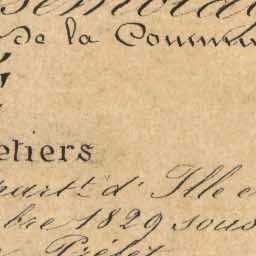 de la Commu
etiers
part.t d'Ille e
bre 1829 sous
Préfet